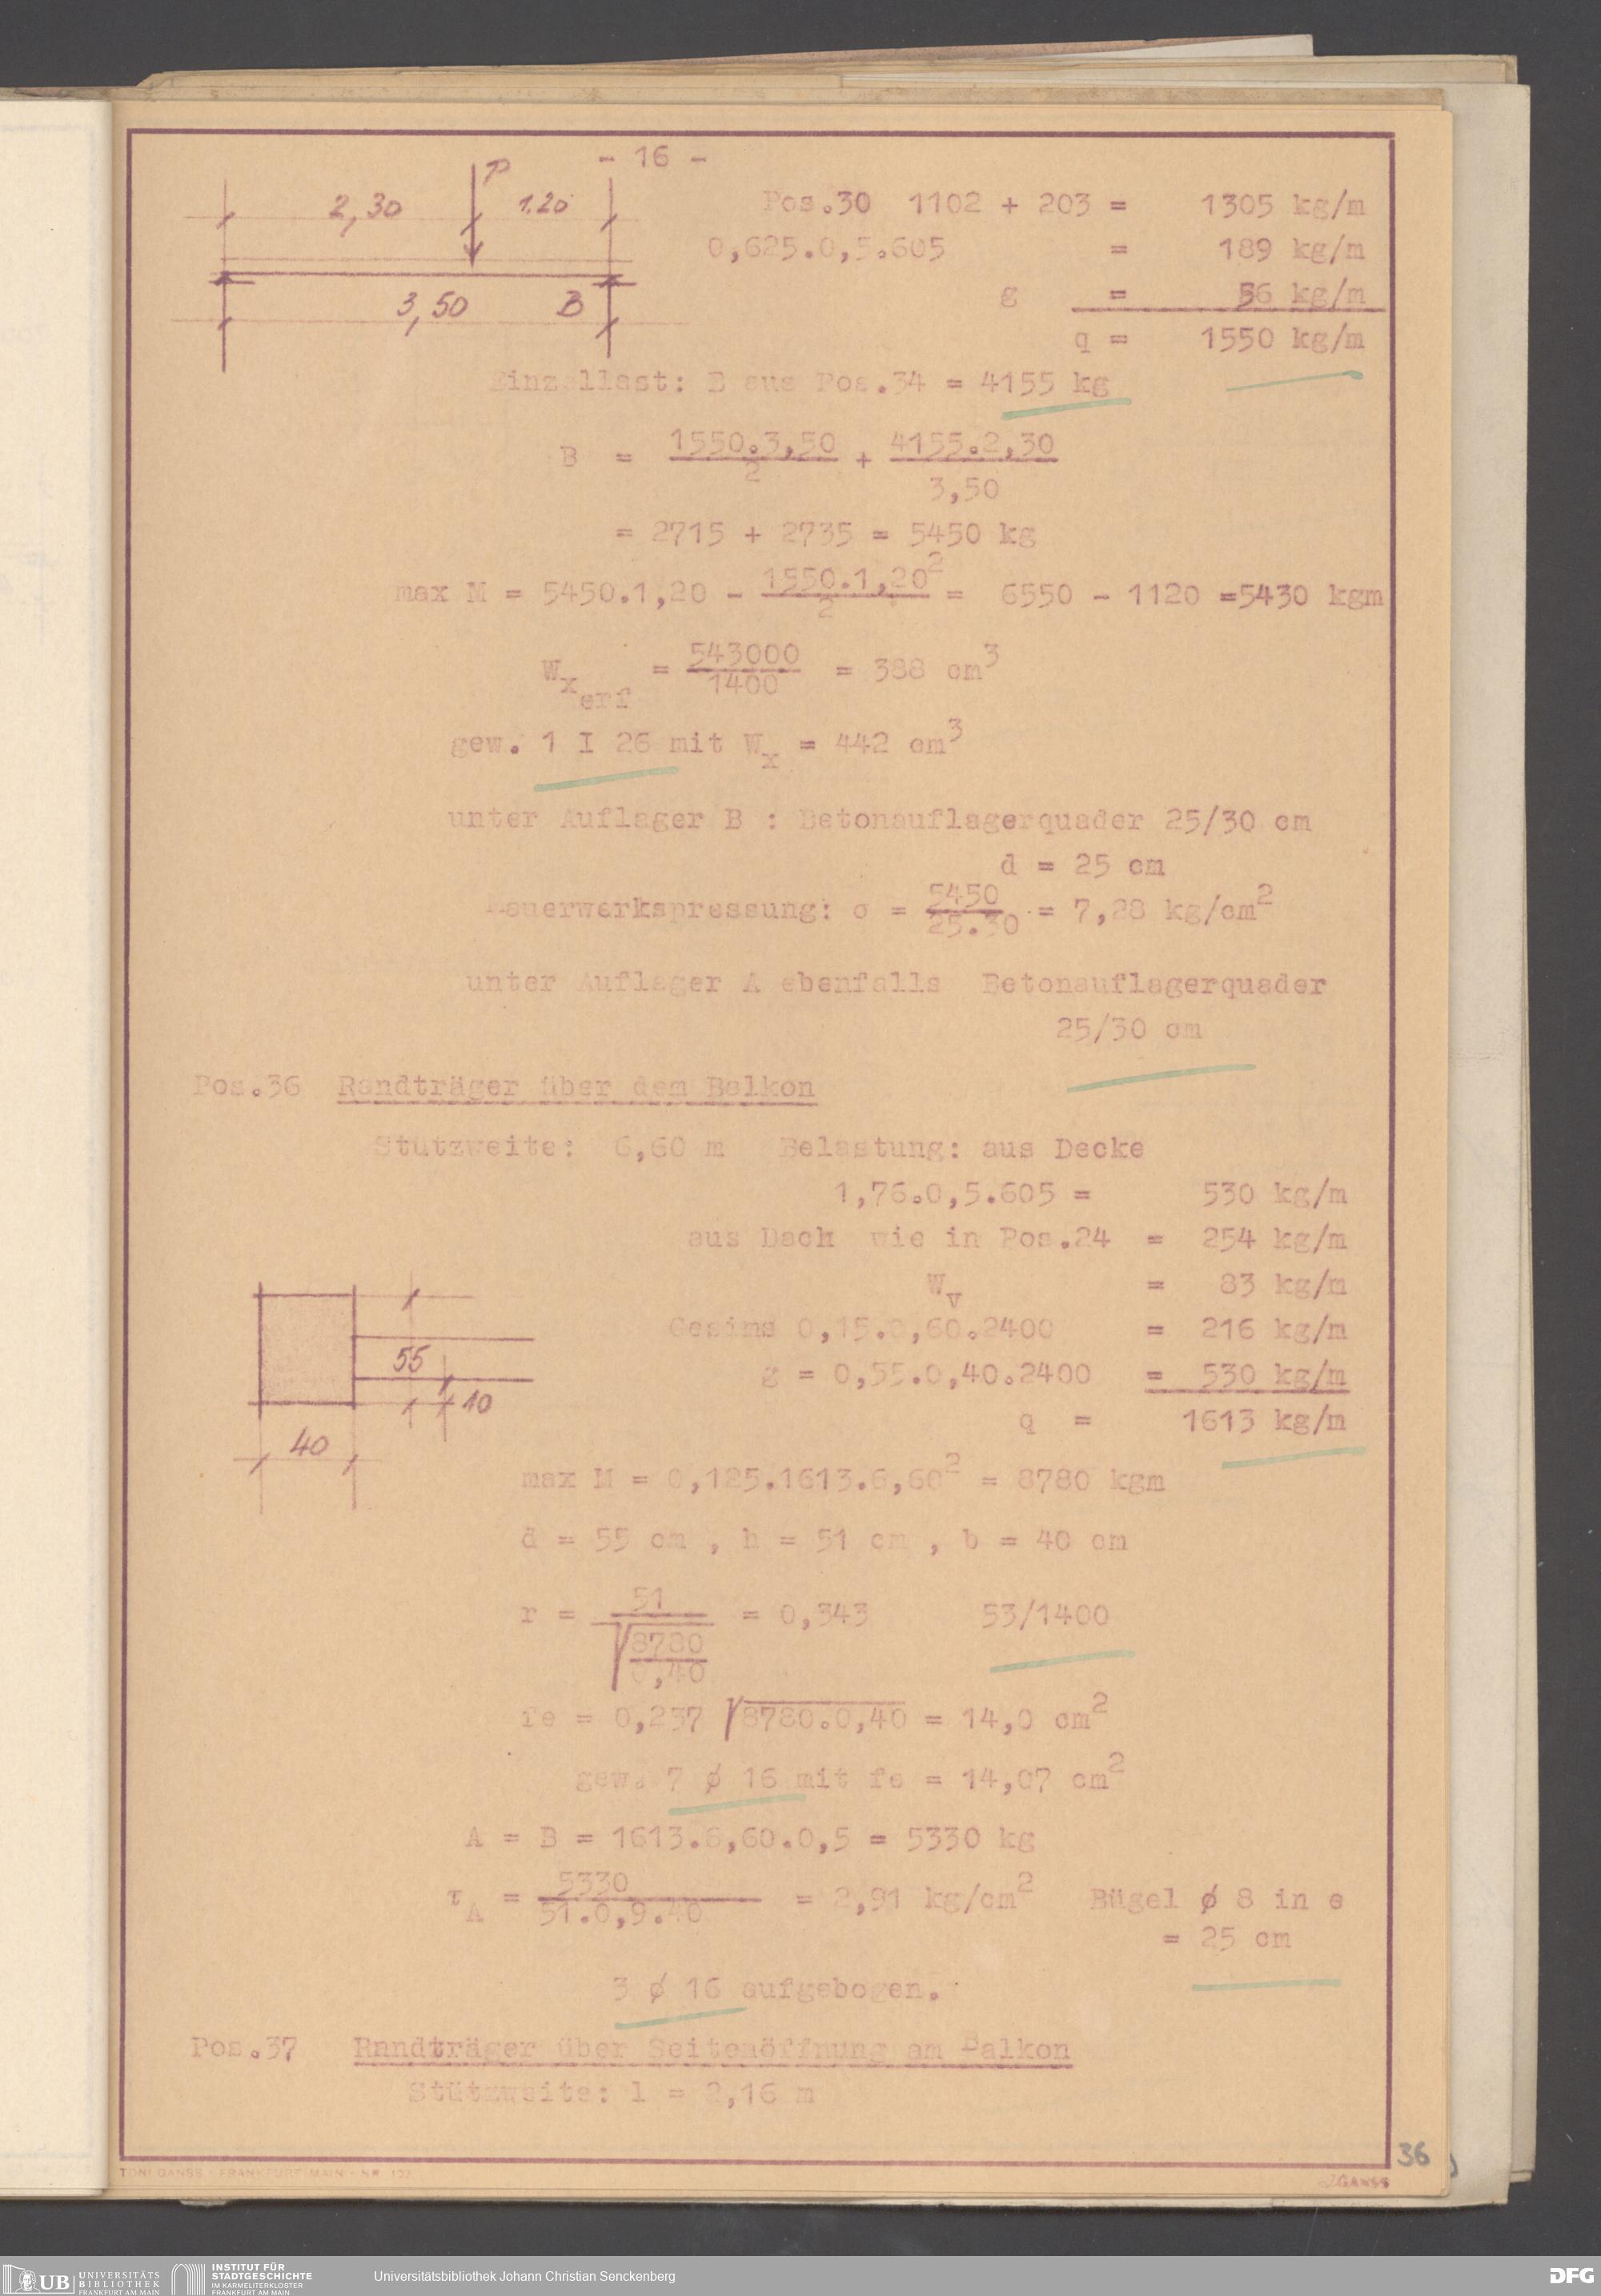 - 16 -
P
2,30
1.20
3,50
B
Pos.30 1102 + 203 = 1305 kg/m
0,625.0,5.605 = 189 kg/m
g = 56 kg/m
q = 1550 kg/m
Einzellast: B aus Pos.34 = 4155 kg
B = 1550.3,50/2 + 4155.2,30/3,50
= 2715 + 2735 = 5450 kg
max M = 5450.1,20 - 1550.1,20²/2 = 6550 - 1120 =5430 kgm
Wx erf = 543000/1400 = 388 cm³
gew. 1 I 26 mit Wx = 442 cm³
unter Auflager B : Betonauflagerquader 25/30 cm
d = 25 cm
Mauerwerkspressung: σ = 5450/25.30 = 7,28 kg/cm²
unter Auflager A ebenfalls Betonauflagerquader
25/30 cm
Pos.36 Randträger über dem Balkon
Stützweite: 6,60 m Belastung: aus Decke
1,76.0,5.605 = 530 kg/m
aus Dach wie in Pos.24 = 254 kg/m
Wv = 83 kg/m
Gesims 0,15.0,60.2400 = 216 kg/m
g = 0,55.0,40.2400 = 530 kg/m
q = 1613 kg/m
55
10
40
max M = 0,125.1613.6,60² = 8780 kgm
d = 55 cm , h = 51 cm , b = 40 cm
r = 51/√8780/0,40 = 0,343 53/1400
fe = 0,237 √8780.0,40 = 14,0 cm²
gew. 7 ø 16 mit fe = 14,07 cm²
A = B = 1613.6,60.0,5 = 5330 kg
τA = 5330/51.0,9.40 = 2,91 kg/cm² Bügel ø 8 in e
= 25 cm
3 ø 16 aufgebogen.
Pos.37 Rnndträger über Seitenöffnung am Balkon
Stützweite: l = 2,16 m
36
TONI GANSS · FRANKFURT-MAIN · NR. 107
GANSS
UB UNIVERSITÄTS
BIBLIOTHEK
FRANKFURT AM MAIN
INSTITUT FÜR
STADTGESCHICHTE
IM KARMELITERKLOSTER
FRANKFURT AM MAIN
Universitätsbibliothek Johann Christian Senckenberg
DFG